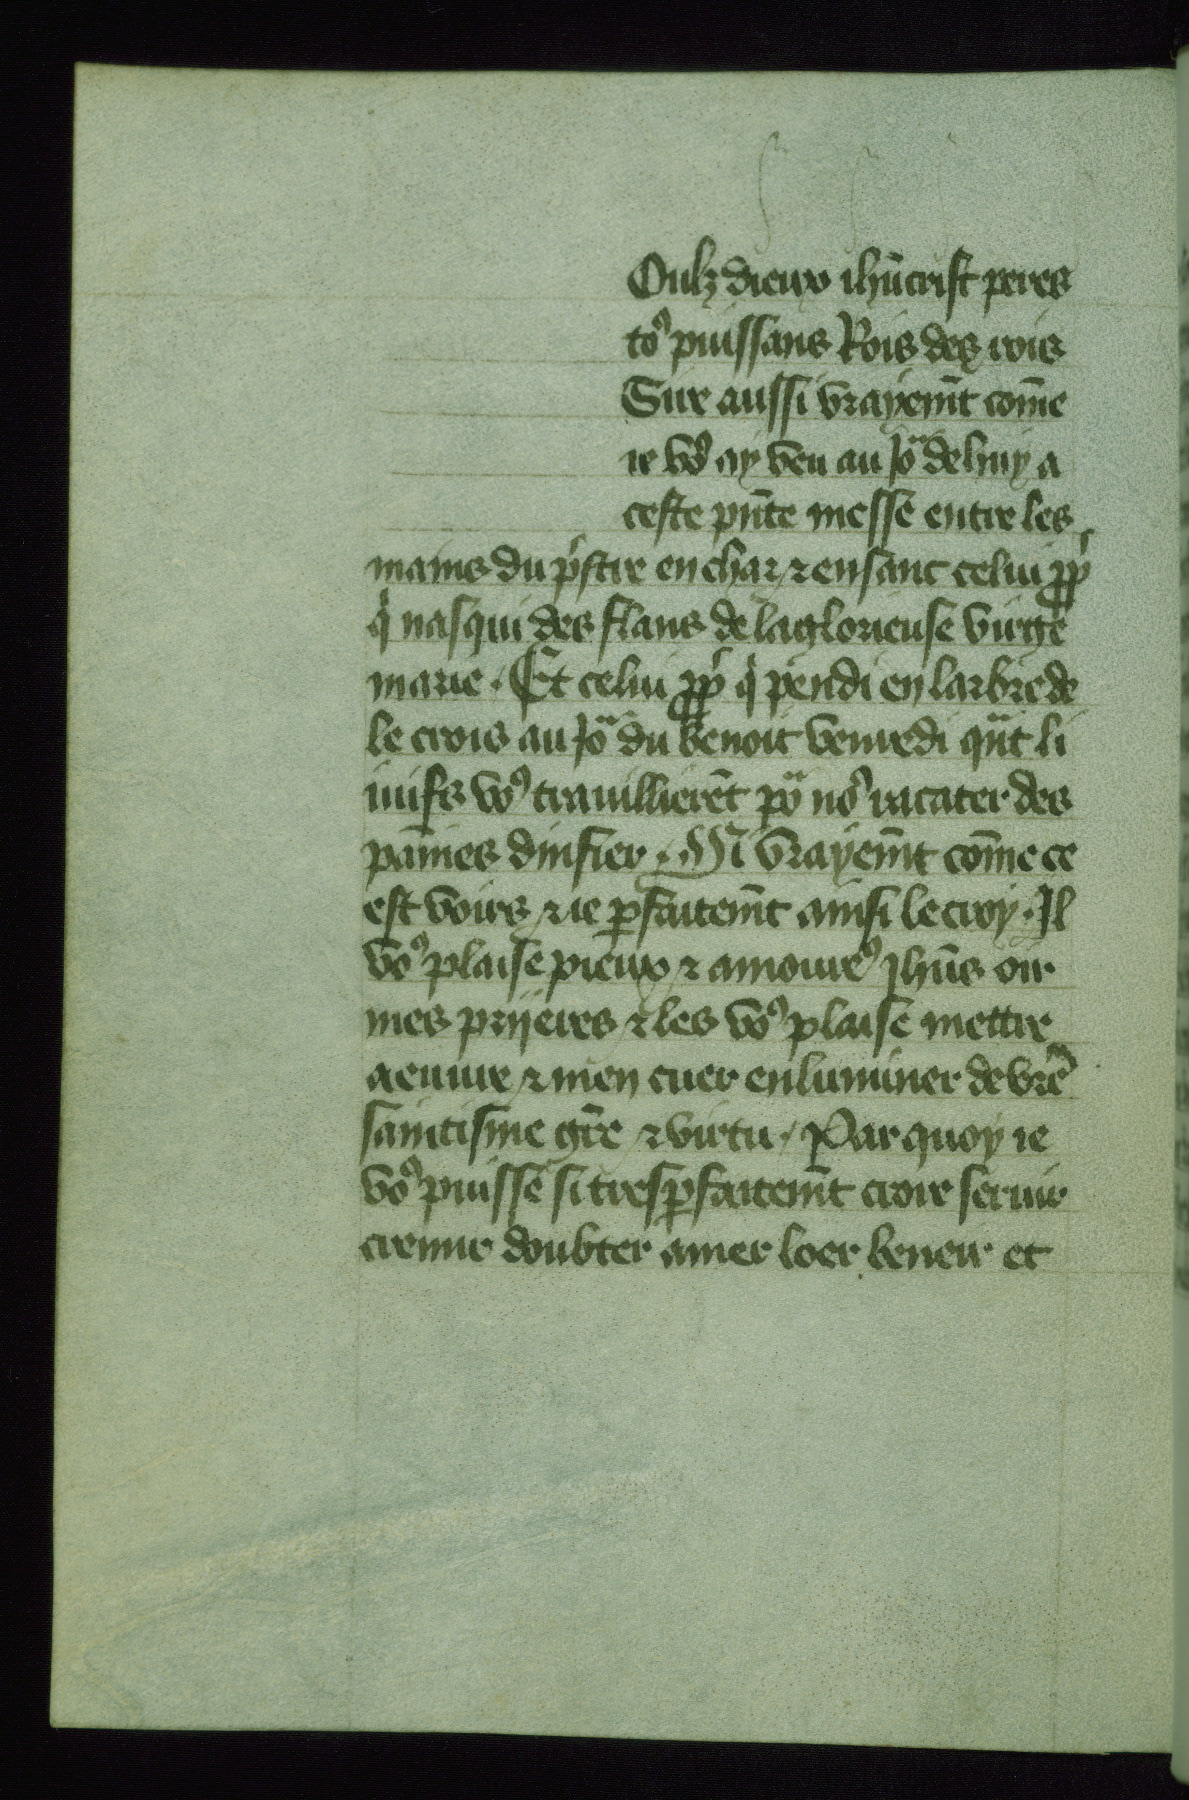 Oulz dieux ihūcrist peres
to⁹ puissans Rois des rois
Sire aussi vrayemīt cōme
ie vo⁹ ay veu au Jo͛ dehuy a
ceste pn̄te messe entre les
mains du p͛stre en char ⁊ en sanc celui pp͛
q̇ nasqui des flans de la glorieuse virge
marie . Et celui pp͛ q̇ pendi en larbre de
le crois au Jo͛ du benoit venredi qᵃnt li
iuifs vo⁹ travillierēt po͛ no⁹ racater des
pāines dinfier . Si vrayemīt cōme ce
est voirs ⁊ ie ꝑfaitemīt ainsi le croy . Il
vo⁹ plaise pieux ⁊ amoure⁹ Jhūs oir
mes priieres ⁊ les vo⁹ plaise mettre
a euure ⁊ men cuer enluminer de vrē
saintisme grc̄e ⁊ virtu . Par quoy ie
vo⁹ puisse si tresꝑfaitemīt croire seruir
cremir doubter amer loer beneir et